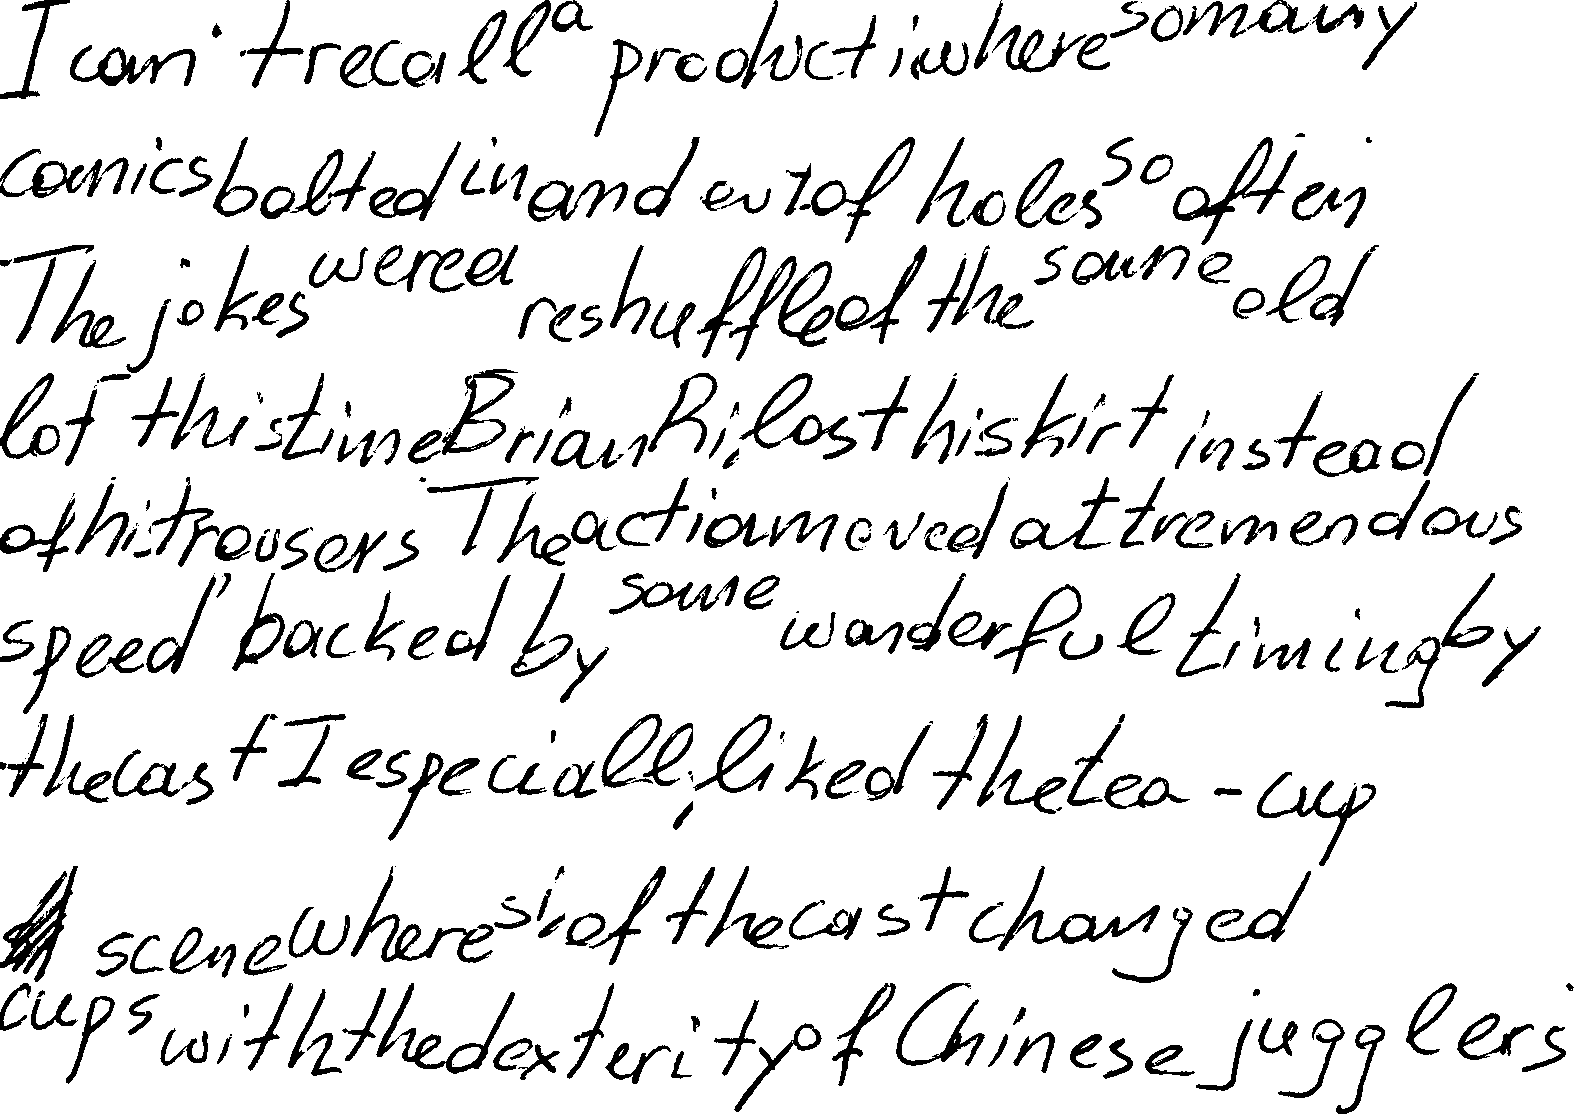 I can't recall a production where so many
comics bolted in and out of holes so often
The jokes were a reshuffle of the same old
lot this time Brian Rix lost his kirt instead
of his trousers The action moved at tremendous
speed, backed by some wonderful timing by
the cast I especially liked the tea-cup
scene where six of the cast changed
cups with the dexterity of Chinese jugglers